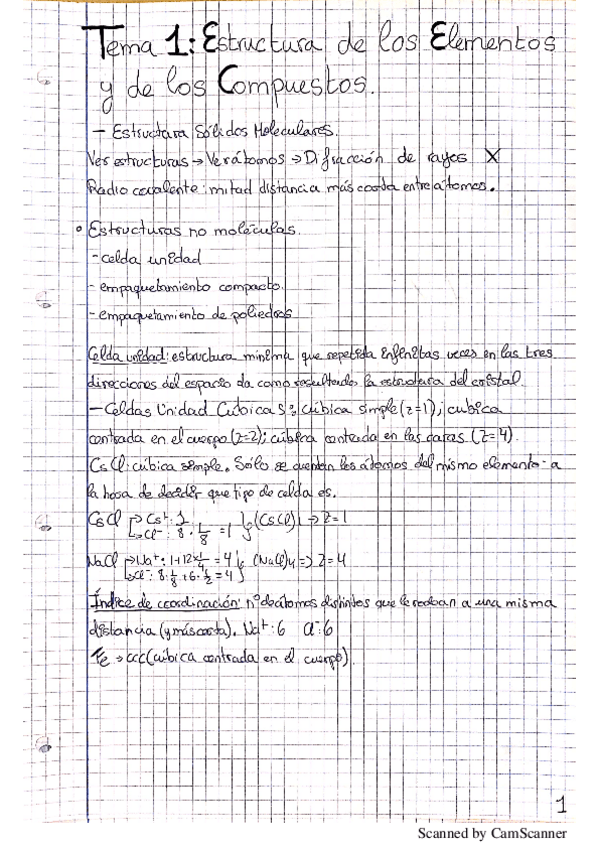 Tema 1: Estructura de los Elementos
y de los Compuestos.
- Estructura Sólidos Moleculares.
Ver estructuras → Ver átomos → Difracción de rayos X
Radio covalente: mitad distancia más corta entre átomos.
• Estructuras no moléculas.
- celda unidad
- empaquetamiento compacto.
- empaquetamiento de poliedros
Celda unidad: estructura mínima que repetida infinitas veces en las tres
direcciones del espacio da como resultado la estructura del cristal.
- Celdas Unidad Cúbicas: cúbica simple (z=1); cúbica
centrada en el cuerpo (z=2); cúbica centrada en las caras (z=4).
CsCl: cúbica simple. Sólo se cuentan los átomos del mismo elemento a
la hora de decidir que tipo de celda es.
CsCl → Cs⁺: 1
→ Cl⁻: 8 · 1/8 = 1 } (CsCl)₁ ⇒ z=1
NaCl → Na⁺: 1+12·1/4 = 4
→ Cl⁻: 8·1/8 + 6·1/2 = 4 } (NaCl)₄ ⇒ z=4
Índice de coordinación: nº de átomos distintos que le rodean a una misma
distancia (y más corta). Na⁺: 6 Cl⁻: 6
Fe → ccc (cúbica centrada en el cuerpo)
1
Scanned by CamScanner